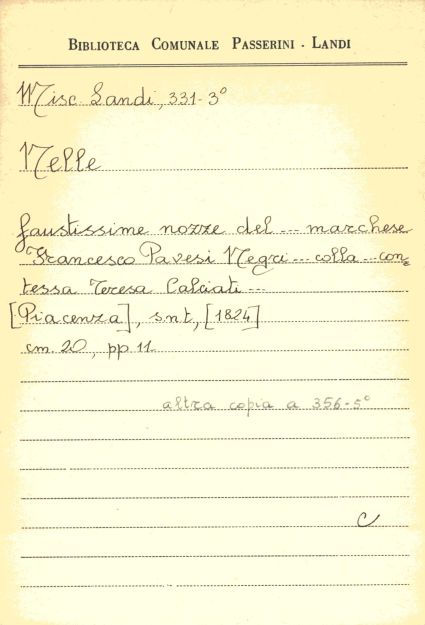 BIBLIOTECA COMUNALE PASSERINI - LANDI
Misc. Landi, 331-3°
Nelle
faustissime nozze del --- marchese
Francesco Pavesi Negri --- colla --- con=
tessa Teresa Calciati ---
[Piacenza], s.n.t, [1824]
cm. 20, pp. 11.
altra copia a 356-5°
C